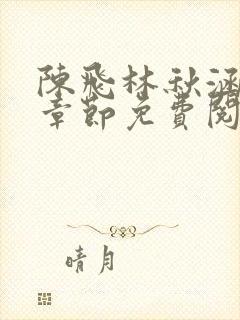 陳飛林秋涵
章節免費閱
晴月